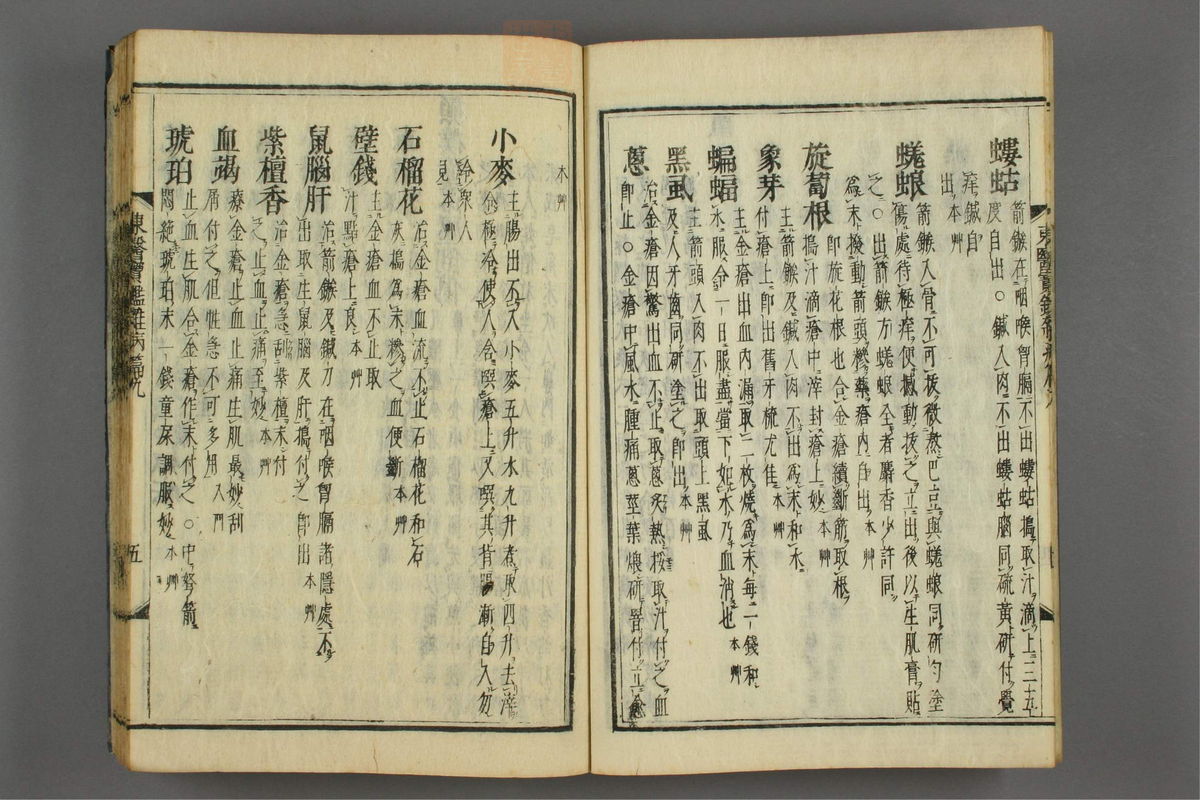 螻蛄 箭鏃在咽喉胷膈不出螻蛄搗取汁滴上三五
度自出○鍼入肉不出螻蛄腦同硫黃研付覺
痒鍼自
出本艸
蜣蜋 箭鏃入骨不可拔微熬巴豆與蜣蜋同研勻塗
傷處待極痒便撼動拔之立出後以生肌膏貼
之○出箭鏃方蜣蜋全者麝香少許同
爲末撥動箭頭糝藥瘡內自出本艸
旋葍根 卽旋花根也合金瘡續斷筋取根
搗汁滴瘡中滓封瘡上妙本艸
象牙 主箭鏃及鍼入肉不出爲末和水
付瘡上卽出舊牙梳尤佳本艸
蝙蝠 主金瘡出血內漏取二枚燒爲末每一錢和
水服令一日服盡當下如水乃血消也本艸
黑虱 主箭頭入肉不出取頭上黑虱
及人牙齒同研塗之卽出本艸
葱 治金瘡因驚出血不止取葱炙熱挼取汁付之血
卽止○金瘡中風水腫痛葱莖葉煨研罯付立愈
本艸
小麥 主腸出不入小麥五升水九升煮取四升去滓
令極冷使人含噀瘡上又噀其背腸漸自入勿
令衆人
見本艸
石榴花 治金瘡血流不止石榴花和石
灰搗爲末糝之血便斷本艸
壁錢 主金瘡血不止取
汁點瘡上良本艸
鼠腦肝 治箭鏃及鍼刀在咽喉胷膈諸隱處不
出取生鼠腦及肝搗付之卽出本艸
紫檀香 治金瘡急刮紫檀末付
之止血止痛至妙本艸
血竭 療金瘡止血止痛生肌最妙刮
屑付之但性急不可多用入門
琥珀 止血生肌合金瘡作末付之○中弩箭
悶絶琥珀末一錢童尿調服妙本艸
東醫寶鑑雜病篇九
五